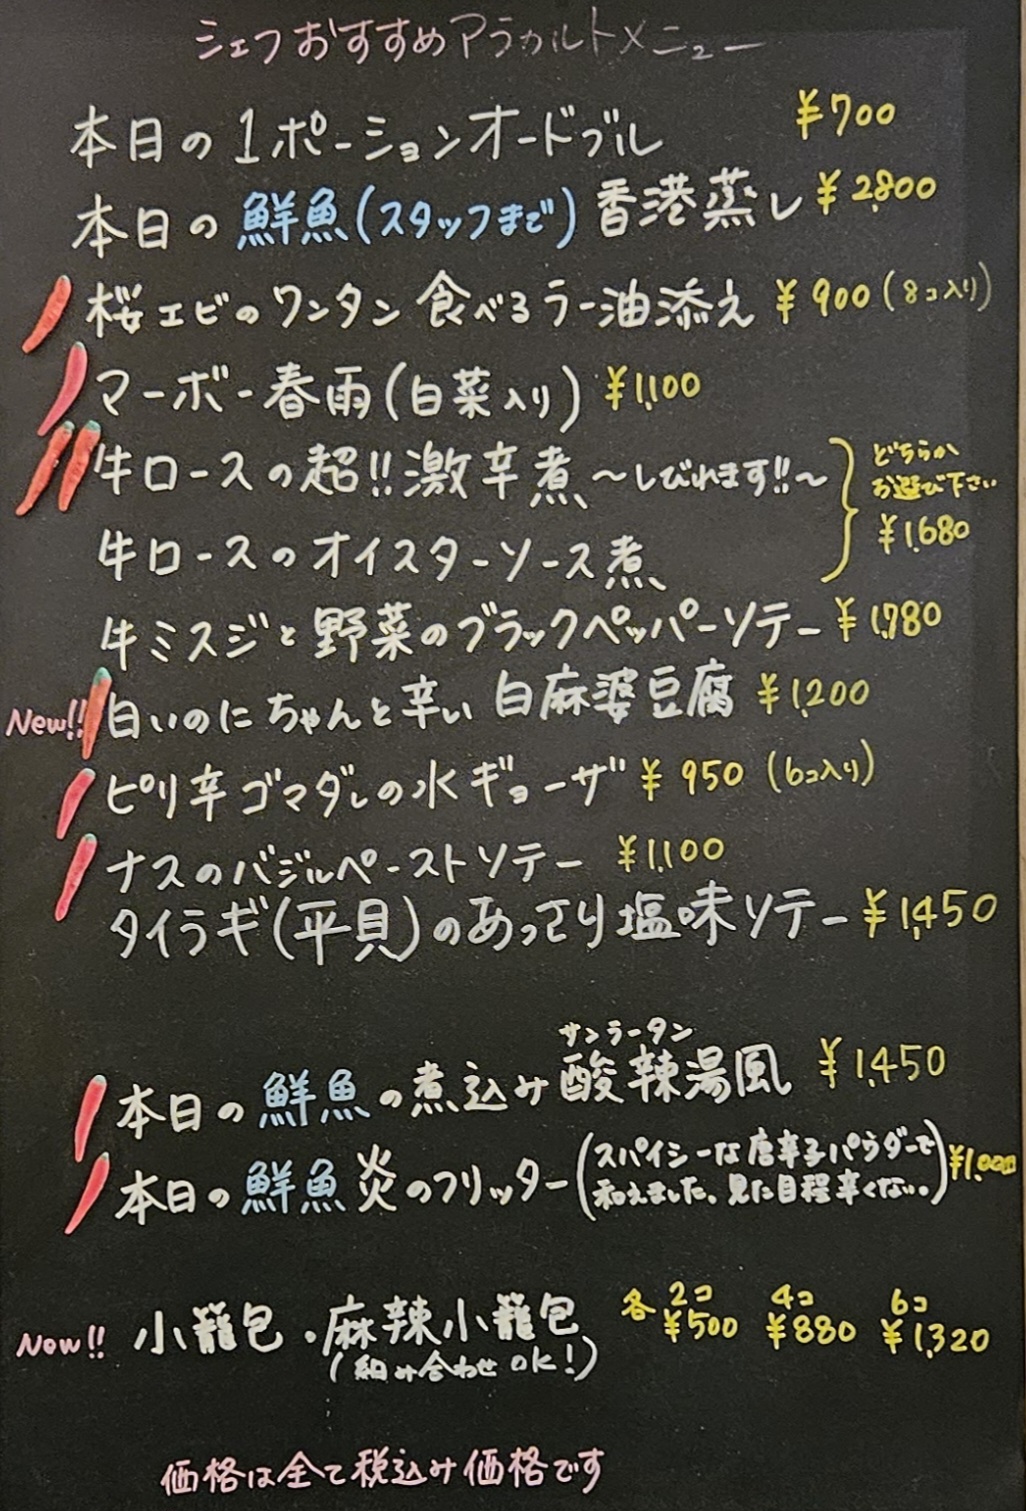 シェフおすすめアラカルトメニュー
本日の1ポーションオードブル ¥700
本日の鮮魚(スタッフまで)香港蒸し ¥2,800
桜エビのワンタン 食べるラー油添え ¥900(8コ入り)
マーボー春雨(白菜入り) ¥1,100
牛ロースの超!!激辛煮 ～しびれます!!～
牛ロースのオイスターソース煮
どちらか
お選び下さい
¥1,680
牛ミスジと野菜のブラックペッパーソテー ¥1,780
New!! 白いのにちゃんと辛い 白麻婆豆腐 ¥1,200
ピリ辛ゴマダレの水ギョーザ ¥950(6コ入り)
ナスのバジルペーストソテー ¥1,100
タイラギ(平貝)のあっさり塩味ソテー ¥1,450
サンラータン
本日の鮮魚の煮込み酸辣湯風 ¥1,450
本日の鮮魚炎のフリッター(スパイシーな唐辛子パウダーで
和えました。見た目程辛くない。) ¥1,000
各 2コ 4コ 6コ
Now!! 小籠包・麻辣小籠包 ¥500 ¥880 ¥1,320
(組み合わせOK!)
価格は全て税込み価格です